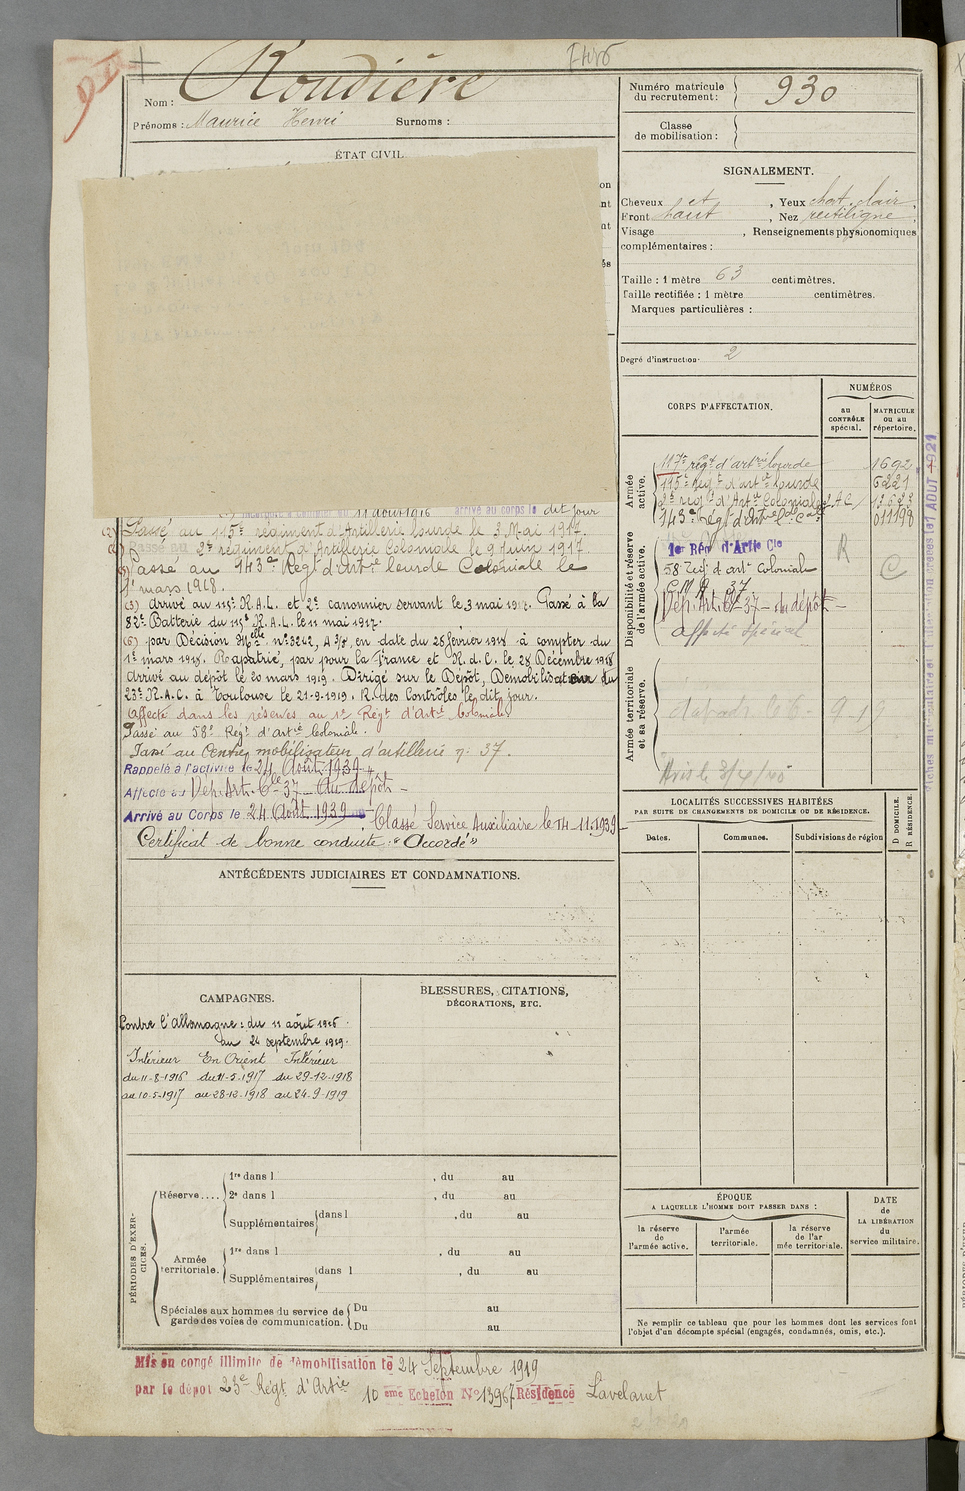 Roudière
Nom :
Prénoms : Maurice Henri Surnoms :
Numéro matricule du recrutement : 930
Classe de mobilisation :
ÉTAT CIVIL.
SIGNALEMENT.
Cheveux , Yeux chat. clair,
Front haut , Nez rectiligne,
Visage , Renseignements physionomiques
complémentaires :
Taille : 1 mètre 63 centimètres.
Taille rectifiée : 1 mètre centimètres.
Marques particulières :
Degré d'instruction. 2
CORPS D'AFFECTATION.
NUMÉROS
au CONTRÔLE spécial.
MATRICULE ou au répertoire.
Armée active.
117e régt d'artrie lourde 1692
115e régt d'artie lourde 6221
2e régt d'Artie Coloniale
143e Régt d'Artie Lde Cale 011198
Disponibilité et réserve de l'armée active.
1er Rég d'Artie Cle
58e Régt d'art Coloniale
R
C
Dép. Art. Cle 37 - au dépôt -
Affecté spécial
Armée territoriale et sa réserve.
11 août 1916 arrivé au corps le dit jour
Passé au 115e régiment d'Artillerie lourde le 3 Mai 1917.
Passé au 2e régiment d'Artillerie Coloniale le 9 Juin 1917
Passé au 143e Régt d'Artie lourde Coloniale le
1er mars 1918.
(5) Arrivé au 115e R.A.L. et 2e canonnier servant le 3 mai 1917. Passé à la
82e Batterie du 115e R.A.L. le 11 mai 1917.
(6) par Décision Mtelle n° 3242, A 3/8, en date du 25 février 1918 à compter du
1er mars 1918. Rapatrié, par pour la France et R. d. C. le 28 Décembre 1918
Arrivé au dépôt le 20 mars 1919. Dirigé sur le Dépôt, Démobilisateur du
23e R.A.C. à Toulouse le 21-9-1919. R. des Contrôles le dit jour.
Affecté dans les réserves au 1er Régt d'Artie Coloniale
Passé au 58e Régt d'Artie Coloniale.
Passé au Centre mobilisateur d'artillerie n° 37.
Rappelé à l'activité le 24 Août 1939
Affecté au Dép. Art. Cle 37 - Au dépôt -
Arrivé au Corps le 24 Août 1939
Classé Service Auxiliaire le 14-11-1939 -
Certificat de bonne conduite : "Accordé"
LOCALITÉS SUCCESSIVES HABITÉES
PAR SUITE DE CHANGEMENTS DE DOMICILE OU DE RÉSIDENCE.
Dates. Communes. Subdivisions de région
D DOMICILE.
R RÉSIDENCE.
ANTÉCÉDENTS JUDICIAIRES ET CONDAMNATIONS.
CAMPAGNES.
Contre l'Allemagne : du 11 août 1916
au 24 septembre 1919.
Intérieur En Orient Intérieur
du 11-8-1916 du 11-5-1917 du 29-12-1918
au 10-5-1917 au 28-12-1918 au 24-9-1919
BLESSURES, CITATIONS,
DÉCORATIONS, ETC.
PÉRIODES D'EXERCICES.
Réserve....
1re dans l , du au
2e dans l , du au
Supplémentaires dans l , du au
Armée territoriale.
1re dans l , du au
Supplémentaires dans l , du au
Spéciales aux hommes du service de garde des voies de communication.
Du au
Du au
ÉPOQUE
A LAQUELLE L'HOMME DOIT PASSER DANS :
la réserve de l'armée active.
l'armée territoriale.
la réserve de l'armée territoriale.
DATE de LA LIBÉRATION du service militaire.
Ne remplir ce tableau que pour les hommes dont les services font
l'objet d'un décompte spécial (engagés, condamnés, omis, etc.).
Mis en congé illimité de démobilisation le 24 Septembre 1919
par le dépôt 23e Régt d'Artie 10 eme Echelon No 13967 Résidence Lavelanet